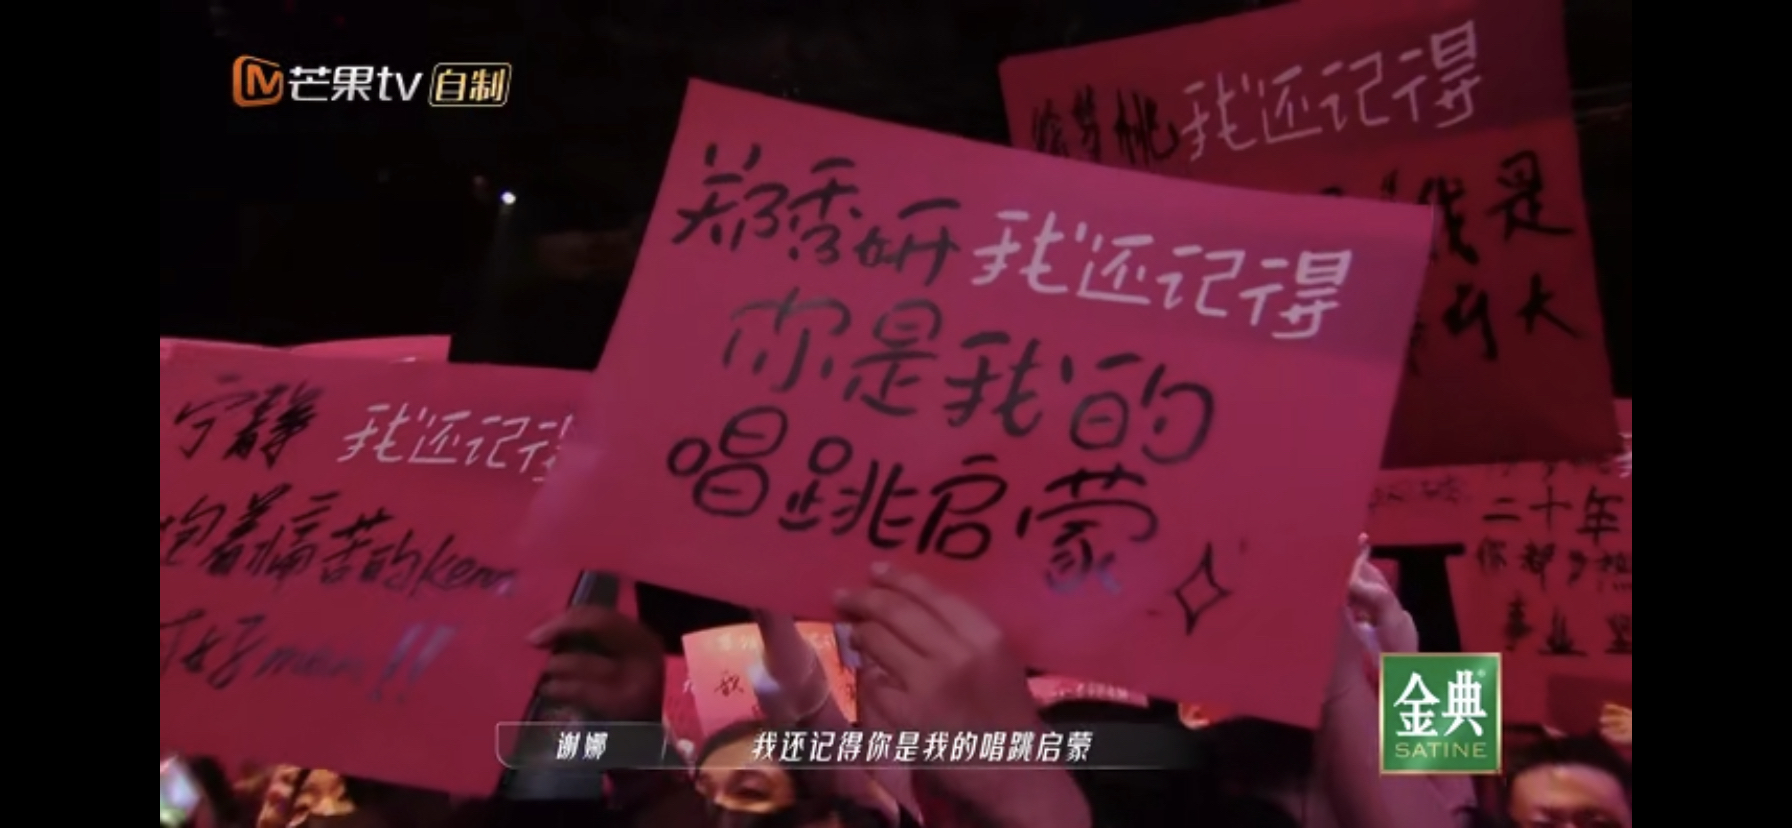 芒果tv 自制
我还记得
是
大
郑秀妍 我还记得
你是我的
唱跳启蒙
宁静 我还记得
抱着痛苦的ken
好man!!
二十年
你都
事业
谢娜 我还记得你是我的唱跳启蒙
金典
SATINE